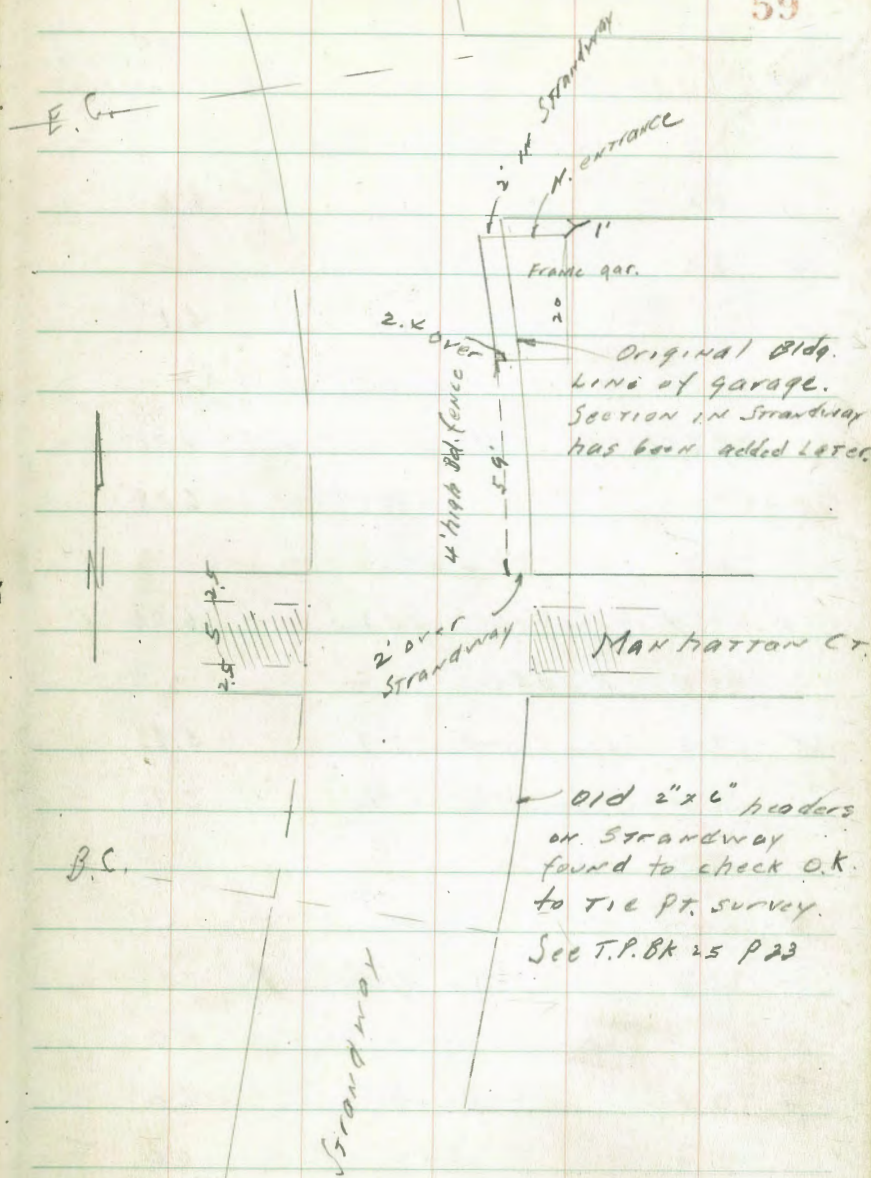 59
E.C.
2' in Strandway
N. entrance
1'
Frame gar.
20
2.x over
Original Bldg.
Line of garage.
Section in Strandway
has been added Later.
4' high Bd. fence
59'
2.5
5
2.5
2' over
Strandway
Manhattan Ct.
N
Old 2" x 6" headers
on Strandway
found to check O.K.
to Tie Pt. survey.
See T.P. BK 25 P 23
B.C.
Strandway